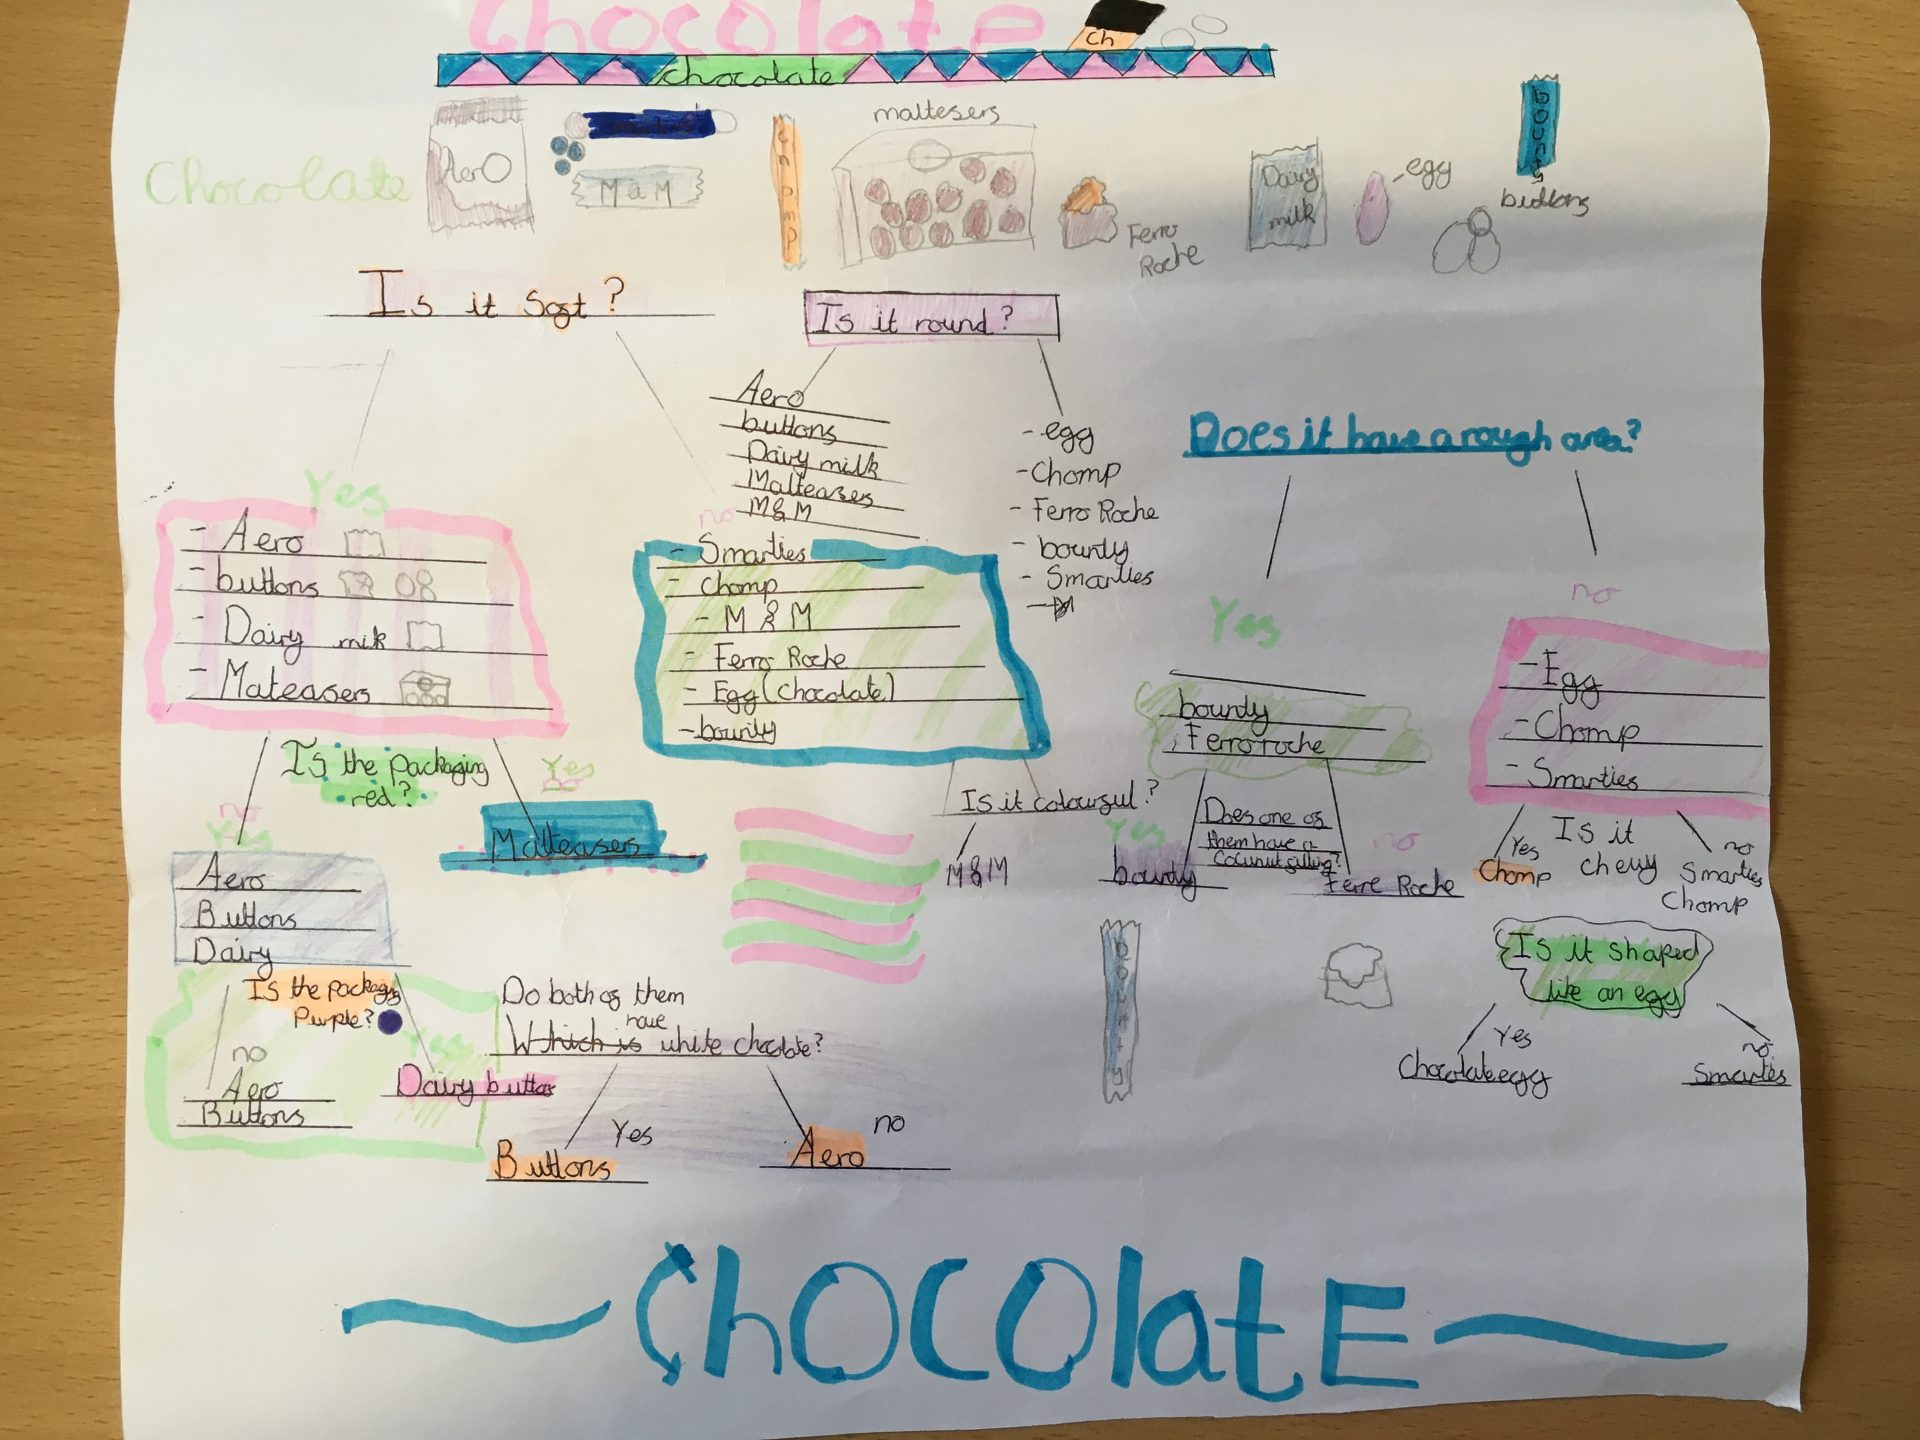 Chocolate
Ch
chocolate
Chocolate
Aero
M & M
chomp
maltesers
Ferro
Roche
Dairy
milk
egg
buttons
Is it soft?
Is it round?
Aero
buttons
Dairy milk
Malteasers
M&M
- egg
- Chomp
- Ferro Roche
- bounty
- Smarties
Does it have a rough area?
Yes
- Aero
- buttons
- Dairy mik
- Mateasers
no
- Smarties
- chomp
- M & M
- Ferro Roche
- Egg (chocolate)
- bounty
Yes
bounty
Ferro roche
no
- Egg
- Chomp
- Smarties
Is the packaging
red?
no
Yes
Aero
Buttons
Dairy
Malteasers
Is it colourful?
M&M
Does one of
them have a
Coconut filling?
Yes
bounty
no
Ferre Roche
Is it
chewy
Yes
Chomp
no
Smarties
Chomp
Is the packagig
Purple?
no
Aero
Buttons
Yes
Dairy button
Do both of them
Which is have white chocolate?
Yes
Buttons
no
Aero
Is it shaped
like an egg
Yes
Chocolate egg
no
Smarties
ChOCOlatE